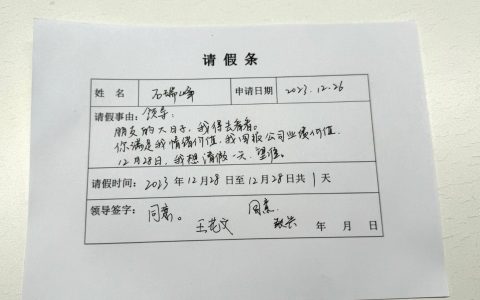 请假条
姓名 石瑞峰 申请日期 2023.12.26
请假事由：领导：
朋友的大日子，我得去看看。
你满足我情绪价值，我回报公司业绩价值
12月28日，我想请假一天，望准。
请假时间：2023年12月28日至12月28日共1天
领导签字：同意。 同意
王花文 年 月 日